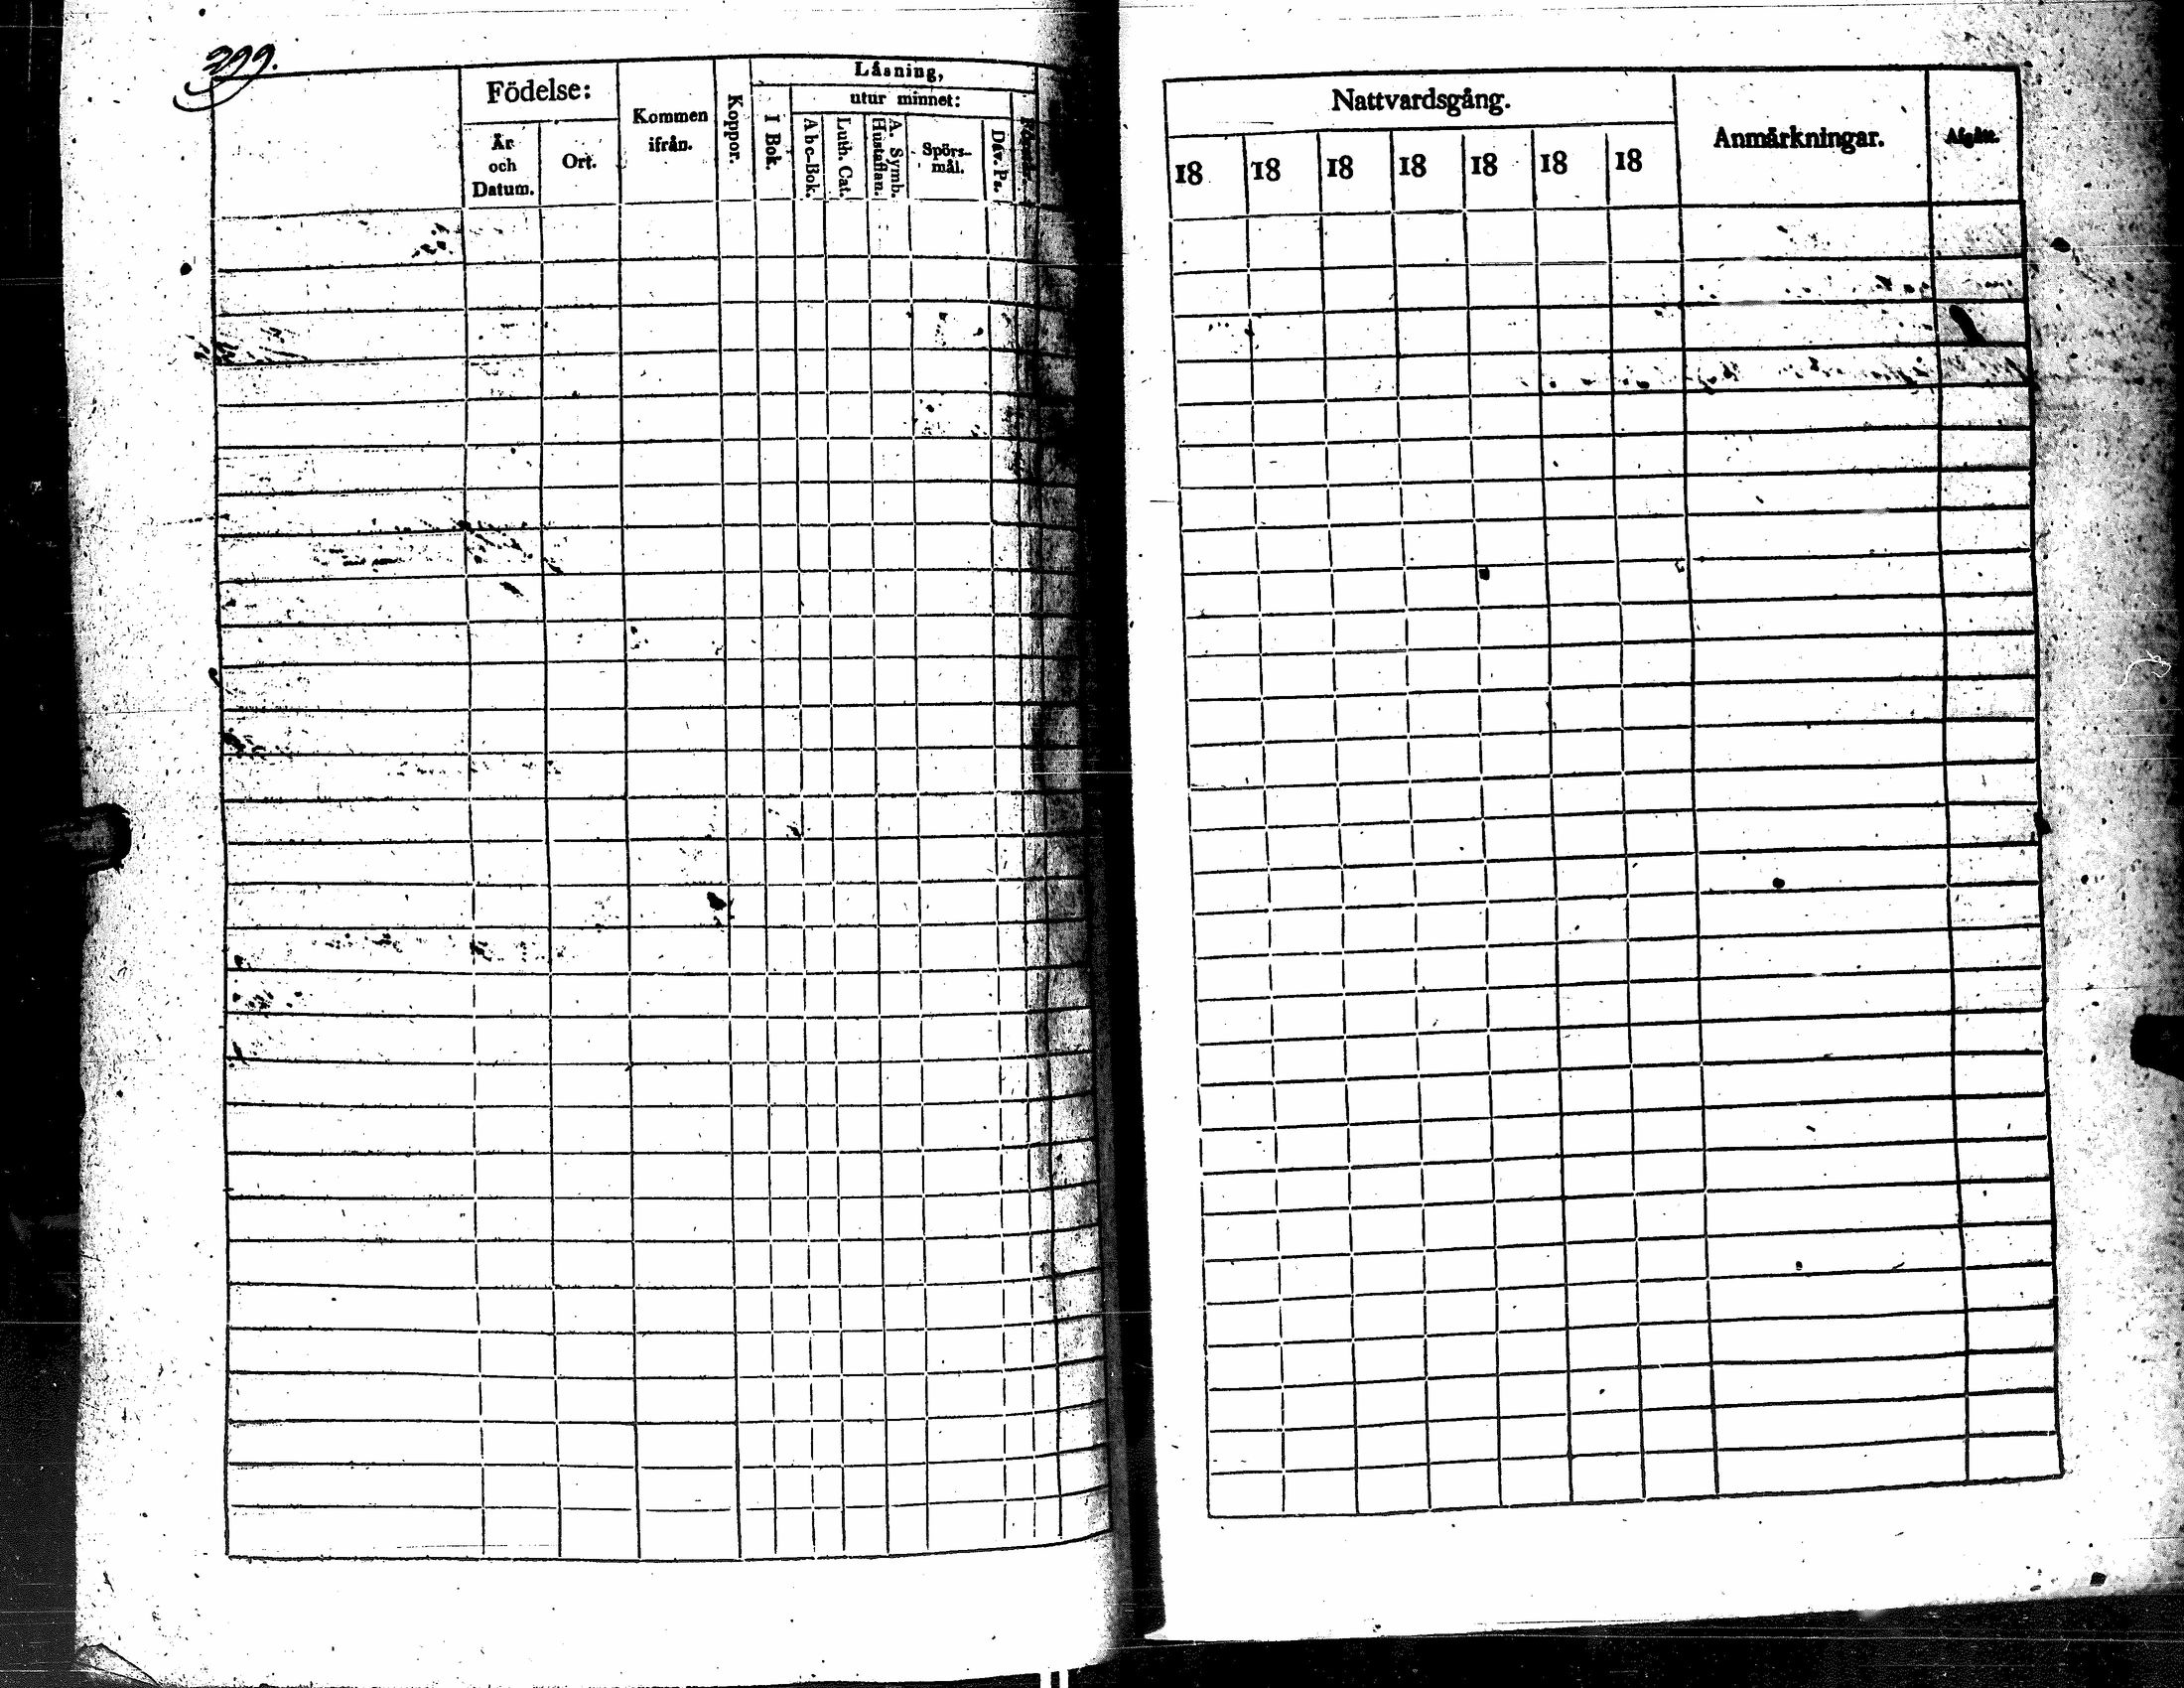 399.
Födelse:
År och Datum.
Ort.
Kommen ifrån.
Koppor.
Läsning,
I Bok.
utur minnet:
Abc-Bok.
Luth. Cat.
A. Symb. Hustaflan.
Spörs-mål.
Dav. Ps.
Nattvardsgång.
18 18 18 18 18 18 18
Anmärkningar.
Afgått.